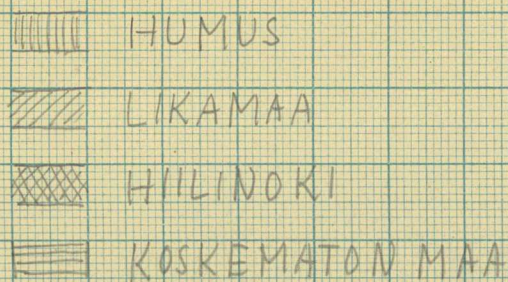 HUMUS
LIKAMAA
HIILINOKI
KOSKEMATON MAA